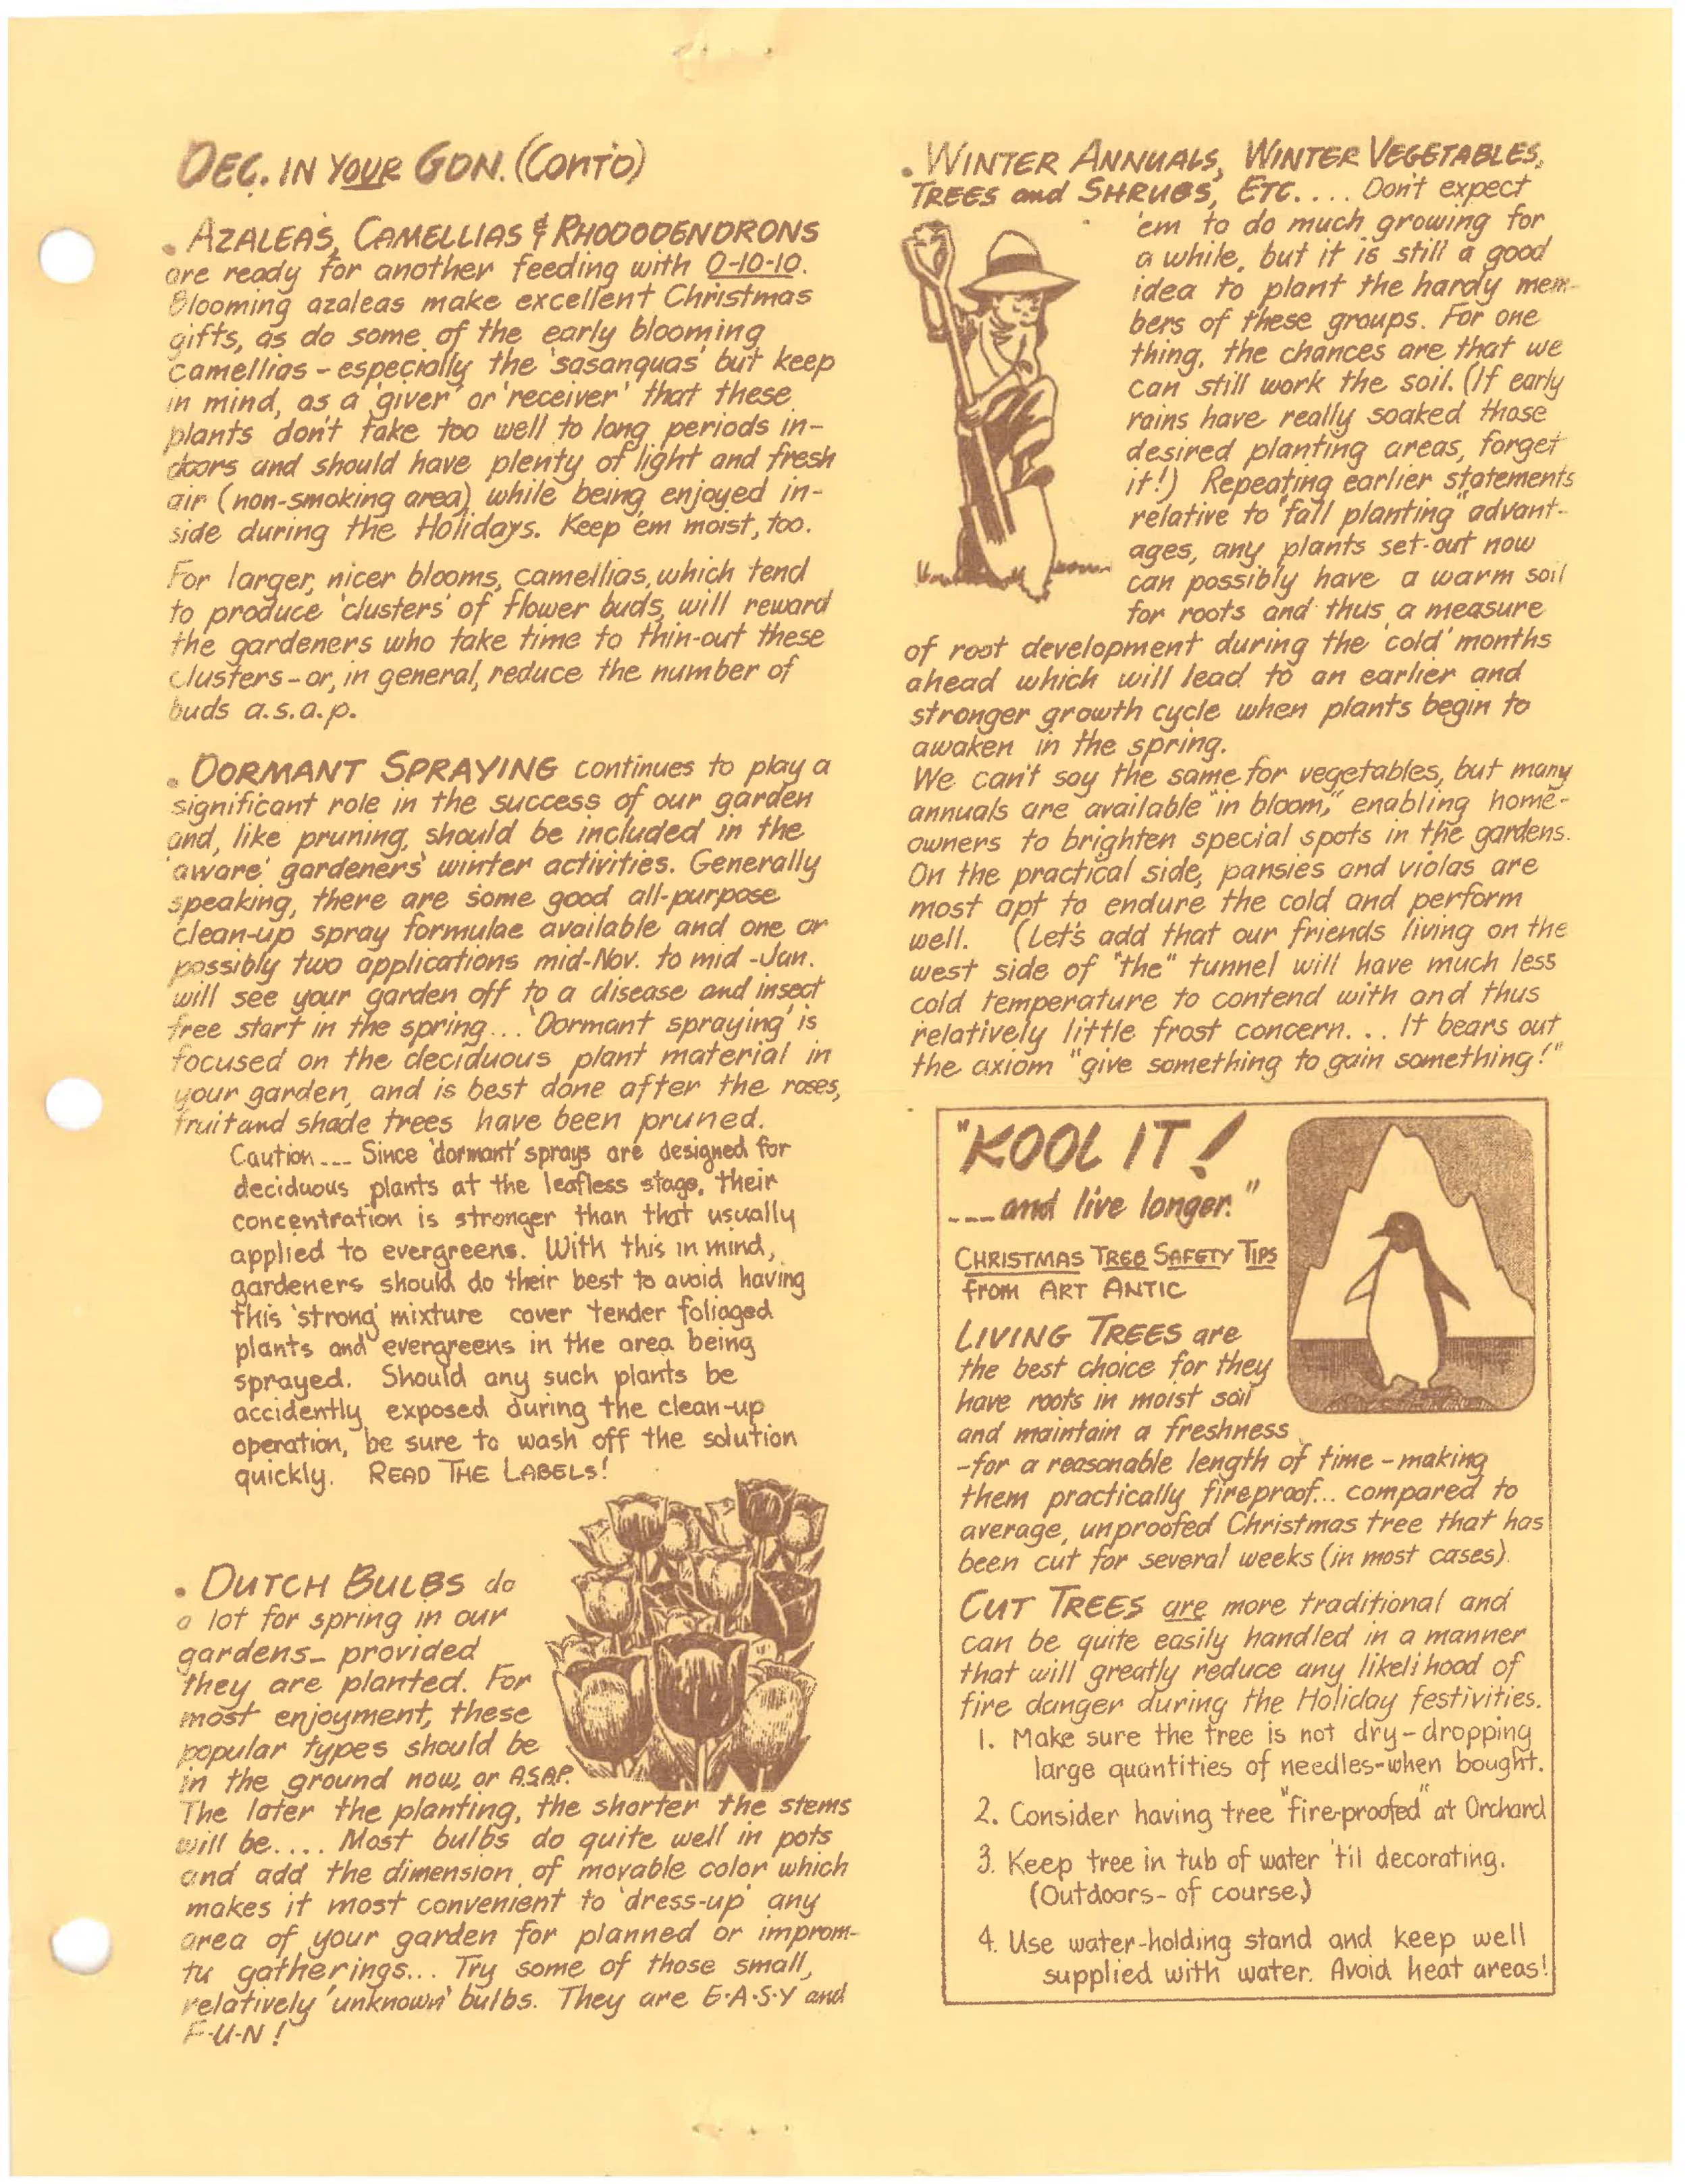 DEC. IN YOUR GDN. (CONT'D)
• AZALEA'S, CAMELLIAS & RHODODENDRONS
are ready for another feeding with 0-10-10.
Blooming azaleas make excellent Christmas
gifts, as do some of the early blooming
camellias - especially the 'sasanquas' but keep
in mind, as a 'giver' or 'receiver' that these
plants don't take too well to long periods in-
doors and should have plenty of light and fresh
air (non-smoking area) while being enjoyed in-
side during the Holidays. Keep 'em moist, too.
For larger, nicer blooms, camellias, which tend
to produce 'clusters' of flower buds, will reward
the gardeners who take time to thin-out these
clusters - or, in general, reduce the number of
buds a.s.a.p.
• DORMANT SPRAYING continues to play a
significant role in the success of our garden
and, like pruning, should be included in the
'aware' gardeners' winter activities. Generally
speaking, there are some good all-purpose
clean-up spray formulae available and one or
possibly two applications mid-Nov. to mid-Jan.
will see your garden off to a disease and insect
free start in the spring... 'Dormant spraying' is
focused on the deciduous plant material in
your garden, and is best done after the roses,
fruit and shade trees have been pruned.
Caution --- Since 'dormant' sprays are designed for
deciduous plants at the leafless stage, their
concentration is stronger than that usually
applied to evergreens. With this in mind,
gardeners should do their best to avoid having
this 'strong' mixture cover tender foliaged
plants and evergreens in the area being
sprayed. Should any such plants be
accidently exposed during the clean-up
operation, be sure to wash off the solution
quickly. READ THE LABELS!
• DUTCH BULBS do
a lot for spring in our
gardens - provided
they are planted. For
most enjoyment, these
popular types should be
in the ground now, or A.S.A.P.
The later the planting, the shorter the stems
will be.... Most bulbs do quite well in pots
and add the dimension of movable color which
makes it most convenient to 'dress-up' any
area of your garden for planned or improm-
tu gatherings... Try some of those small,
relatively 'unknown' bulbs. They are E-A-S-Y and
F-U-N!
• WINTER ANNUALS, WINTER VEGETABLES,
TREES and SHRUBS, ETC.... Don't expect
'em to do much growing for
a while, but it is still a good
idea to plant the hardy mem-
bers of these groups. For one
thing, the chances are that we
can still work the soil. (If early
rains have really soaked those
desired planting areas, forget
it!) Repeating earlier statements
relative to "fall planting" advant-
ages, any plants set-out now
can possibly have a warm soil
for roots and thus a measure
of root development during the 'cold' months
ahead which will lead to an earlier and
stronger growth cycle when plants begin to
awaken in the spring.
We can't say the same for vegetables, but many
annuals are available "in bloom," enabling home-
owners to brighten special spots in the gardens.
On the practical side, pansies and violas are
most apt to endure the cold and perform
well. (Let's add that our friends living on the
west side of "the" tunnel will have much less
cold temperature to contend with and thus
relatively little frost concern... It bears out
the axiom "give something to gain something!"
"KOOL IT!
--- and live longer."
CHRISTMAS TREE SAFETY TIPS
from ART ANTIC
LIVING TREES are
the best choice for they
have roots in moist soil
and maintain a freshness
-for a reasonable length of time - making
them practically fireproof... compared to
average, unproofed Christmas tree that has
been cut for several weeks (in most cases).
CUT TREES are more traditional and
can be quite easily handled in a manner
that will greatly reduce any likelihood of
fire danger during the Holiday festivities.
1. Make sure the tree is not dry - dropping
large quantities of needles - when bought.
2. Consider having tree "fire-proofed" at Orchard
3. Keep tree in tub of water 'til decorating.
(Outdoors - of course.)
4. Use water-holding stand and keep well
supplied with water. Avoid heat areas!